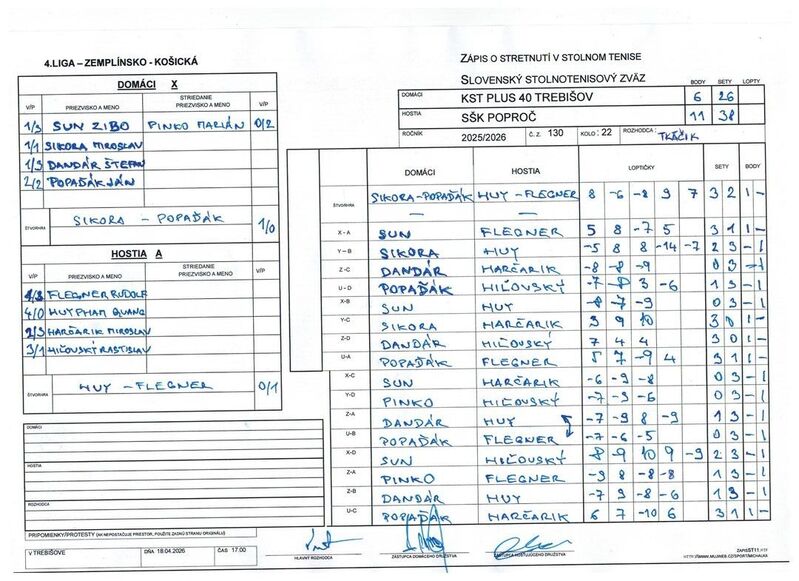 4.LIGA – ZEMPLÍNSKO - KOŠICKÁ
ZÁPIS O STRETNUTÍ V STOLNOM TENISE
SLOVENSKÝ STOLNOTENISOVÝ ZVÄZ
BODY SETY LOPTY
DOMÁCI KST PLUS 40 TREBIŠOV 6 26
HOSTIA SŠK POPROČ 11 38
ROČNÍK 2025/2026 Č. Z. 130 KOLO: 22 ROZHODCA: TKÁČIK
DOMÁCI X
V/P PRIEZVISKO A MENO STRIEDANIE PRIEZVISKO A MENO V/P
1/3 SUN ZIBO PINKO MARIÁN 0/2
1/1 SIKORA MIROSLAV
1/3 DANDÁR ŠTEFAN
2/2 POPAĎÁK JÁN
ŠTVORHRA SIKORA - POPAĎÁK 1/0
HOSTIA A
V/P PRIEZVISKO A MENO STRIEDANIE PRIEZVISKO A MENO V/P
FLEGNER RUDOLF
4/0 HUY PHAM QUANG
2/3 HARČARIK MIROSLAV
3/1 HIČOVSKÝ RASTISLAV
ŠTVORHRA HUY - FLEGNER 0/1
DOMÁCI
HOSTIA
ROZHODCA
DOMÁCI HOSTIA LOPTIČKY SETY BODY
ŠTVORHRA SIKORA-POPAĎÁK HUY-FLEGNER 8 -6 -8 9 7 3 2 1 -
— —
X - A SUN FLEGNER 5 8 -7 5 3 1 1 -
Y – B SIKORA HUY -5 8 8 -14 -7 2 3 - 1
Z -C DANDÁR HARČARIK -8 -8 -9 0 3 - 1
U - D POPAĎÁK HIČOVSKÝ -7 -8 3 -6 1 3 - 1
X-B SUN HUY -8 -7 -9 0 3 - 1
Y-C SIKORA HARČARIK 3 9 10 3 0 1 -
Z-D DANDÁR HIČOVSKÝ 7 4 4 3 0 1 -
U-A POPAĎÁK FLEGNER 5 7 -9 4 3 1 1 -
X-C SUN HARČARIK -6 -9 -8 0 3 - 1
Y-D PINKO HIČOVSKÝ -7 -3 -6 0 3 - 1
Z-A DANDÁR HUY -7 -9 8 -9 1 3 - 1
U-B POPAĎÁK FLEGNER -7 -6 -5 0 3 - 1
X-D SUN HIČOVSKÝ 8 -9 10 9 -9 2 3 - 1
Z-A PINKO FLEGNER -9 8 -8 -8 1 3 - 1
Z-B DANDÁR HUY -7 9 -8 -6 1 3 - 1
U-C POPAĎÁK HARČARIK 6 7 -10 6 3 1 1 -
PRIPOMIENKY/PROTESTY (AK NEPOSTAČUJE PRIESTOR, POUŽITE ZADNÚ STRANU ORIGINÁLU)
V TREBIŠOVE DŇA 18.04.2026 ČAS 17.00
HLAVNÝ ROZHODCA ZÁSTUPCA DOMÁCEHO DRUŽSTVA ZÁSTUPCA HOSŤUJÚCEHO DRUŽSTVA
ZAPISST11.RTF
HTTP://WWW.MUJWEB.CZ/SPORT/MICHALKA